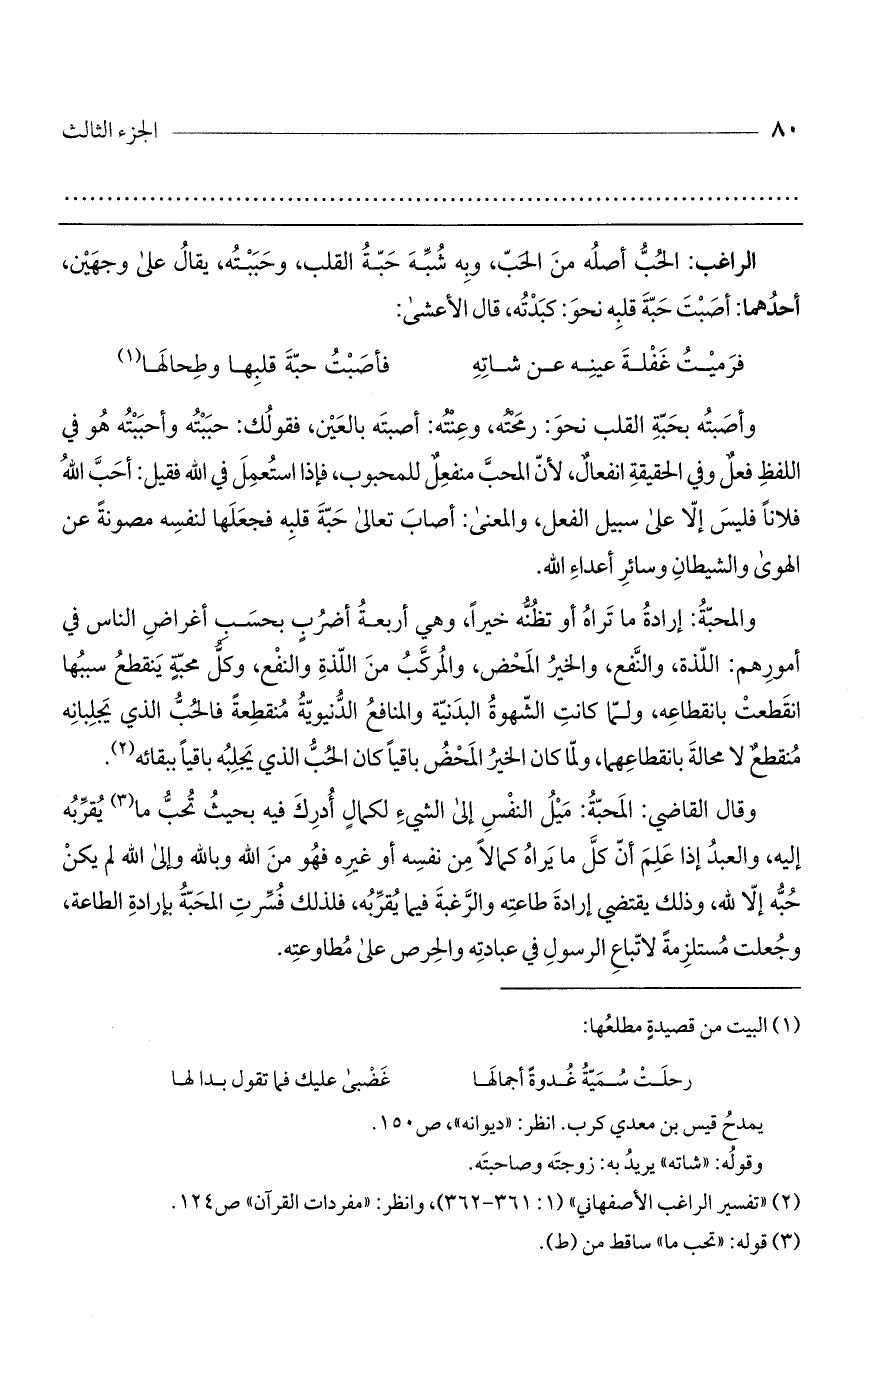 ٨٠ الجزء الثالث
الراغب: الحُبُّ أصلُه منَ الحَبّ، وبِه شُبِّهَ حَبّةُ القلب، وحَبَبْتُه، يقالُ علىٰ وجهَيْن،
أحدُهما: أصَبْتَ حَبّةَ قلبِه نحوَ: كبَدْتُه، قال الأعشىٰ:
فرَميْتُ غَفْلةَ عينِه عن شاتِهِ فأصَبْتُ حبّةَ قلبِها وطِحالَها(١)
وأصَبتُه بحَبّةِ القلب نحوَ: رمَحْتُه، وعِنْتُه: أصبتَه بالعَيْن، فقولُك: حبَبْتُه وأحبَبْتُه هُو في
اللفظِ فعلٌ وفي الحقيقةِ انفعالٌ، لأنّ المحبَّ منفعِلٌ للمحبوب، فإذا استُعمِلَ في الله فقيل: أحَبَّ اللهُ
فلاناً فليسَ إلّا علىٰ سبيل الفعل، والمعنىٰ: أصابَ تعالىٰ حَبّةَ قلبِه فجعَلَها لنفسِه مصونةً عن
الهوىٰ والشيطانِ وسائرِ أعداءِ الله.
والمحبّةُ: إرادةُ ما تَراهُ أو تظُنُّه خيراً، وهي أربعةُ أضرُبٍ بحسَبِ أغراضِ الناس في
أمورِهم: اللّذة، والنَّفع، والخيرُ المَحْض، والمُركَّبُ منَ اللّذةِ والنفْع، وكلُّ محبّةٍ يَنقطعُ سببُها
انقَطعتْ بانقطاعِه، ولـمّا كانتِ الشّهوةُ البدَنيّة والمنافعُ الدُّنيويّةُ مُنقطِعةً فالحُبُّ الذي يَجلِبانِه
مُنقطعٌ لا محالةَ بانقطاعِهما، ولمّا كان الخيرُ المَحْضُ باقياً كان الحُبُّ الذي يَجلِبُه باقياً ببقائه(٢).
وقال القاضي: المَحبّةُ: مَيْلُ النفْسِ إلىٰ الشيءِ لكمالٍ أُدرِكَ فيه بحيثُ تُحبُّ ما(٣) يُقرِّبُه
إليه، والعبدُ إذا عَلِمَ أنّ كلَّ ما يَراهُ كمالاً مِن نفسِه أو غيرِه فهُو منَ الله وبالله وإلىٰ الله لم يكنْ
حُبُّه إلّا لله، وذلك يقتضي إرادةَ طاعتِه والرَّغبةَ فيما يُقرِّبُه، فلذلك فُسِّرتِ المحَبّةُ بإرادةِ الطاعة،
وجُعلت مُستلزِمةً لاتّباعِ الرسولِ في عبادتِه والحِرص علىٰ مُطاوعتِه.
(١) البيت من قصيدةٍ مطلعُها:
رحلَتْ سُميّةُ غُدوةً أجمالَها غَضْبىٰ عليك فما تقول بدا لها
يمدحُ قيس بن معدي كرب. انظر: «ديوانه»، ص١٥٠.
وقولُه: «شاته» يريدُ به: زوجتَه وصاحبتَه.
(٢) «تفسير الراغب الأصفهاني» (١: ٣٦١-٣٦٢)، وانظر: «مفردات القرآن» ص١٢٤.
(٣) قوله: «تحب ما» ساقط من (ط).